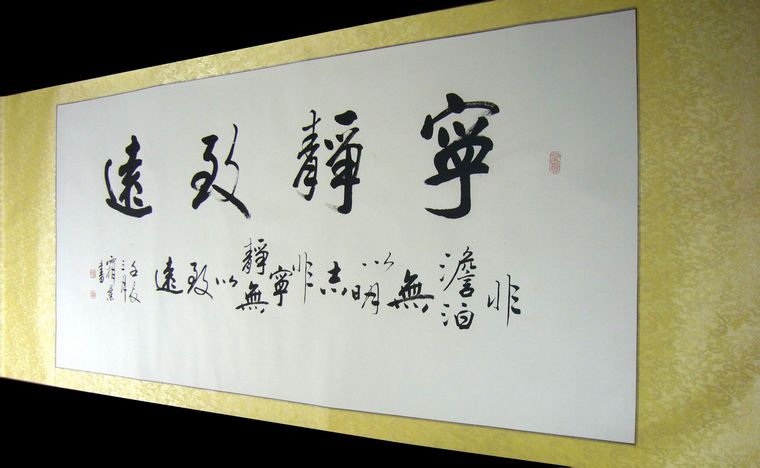 寧靜致遠
非澹泊無以明志非寧靜無以致遠
三月
書